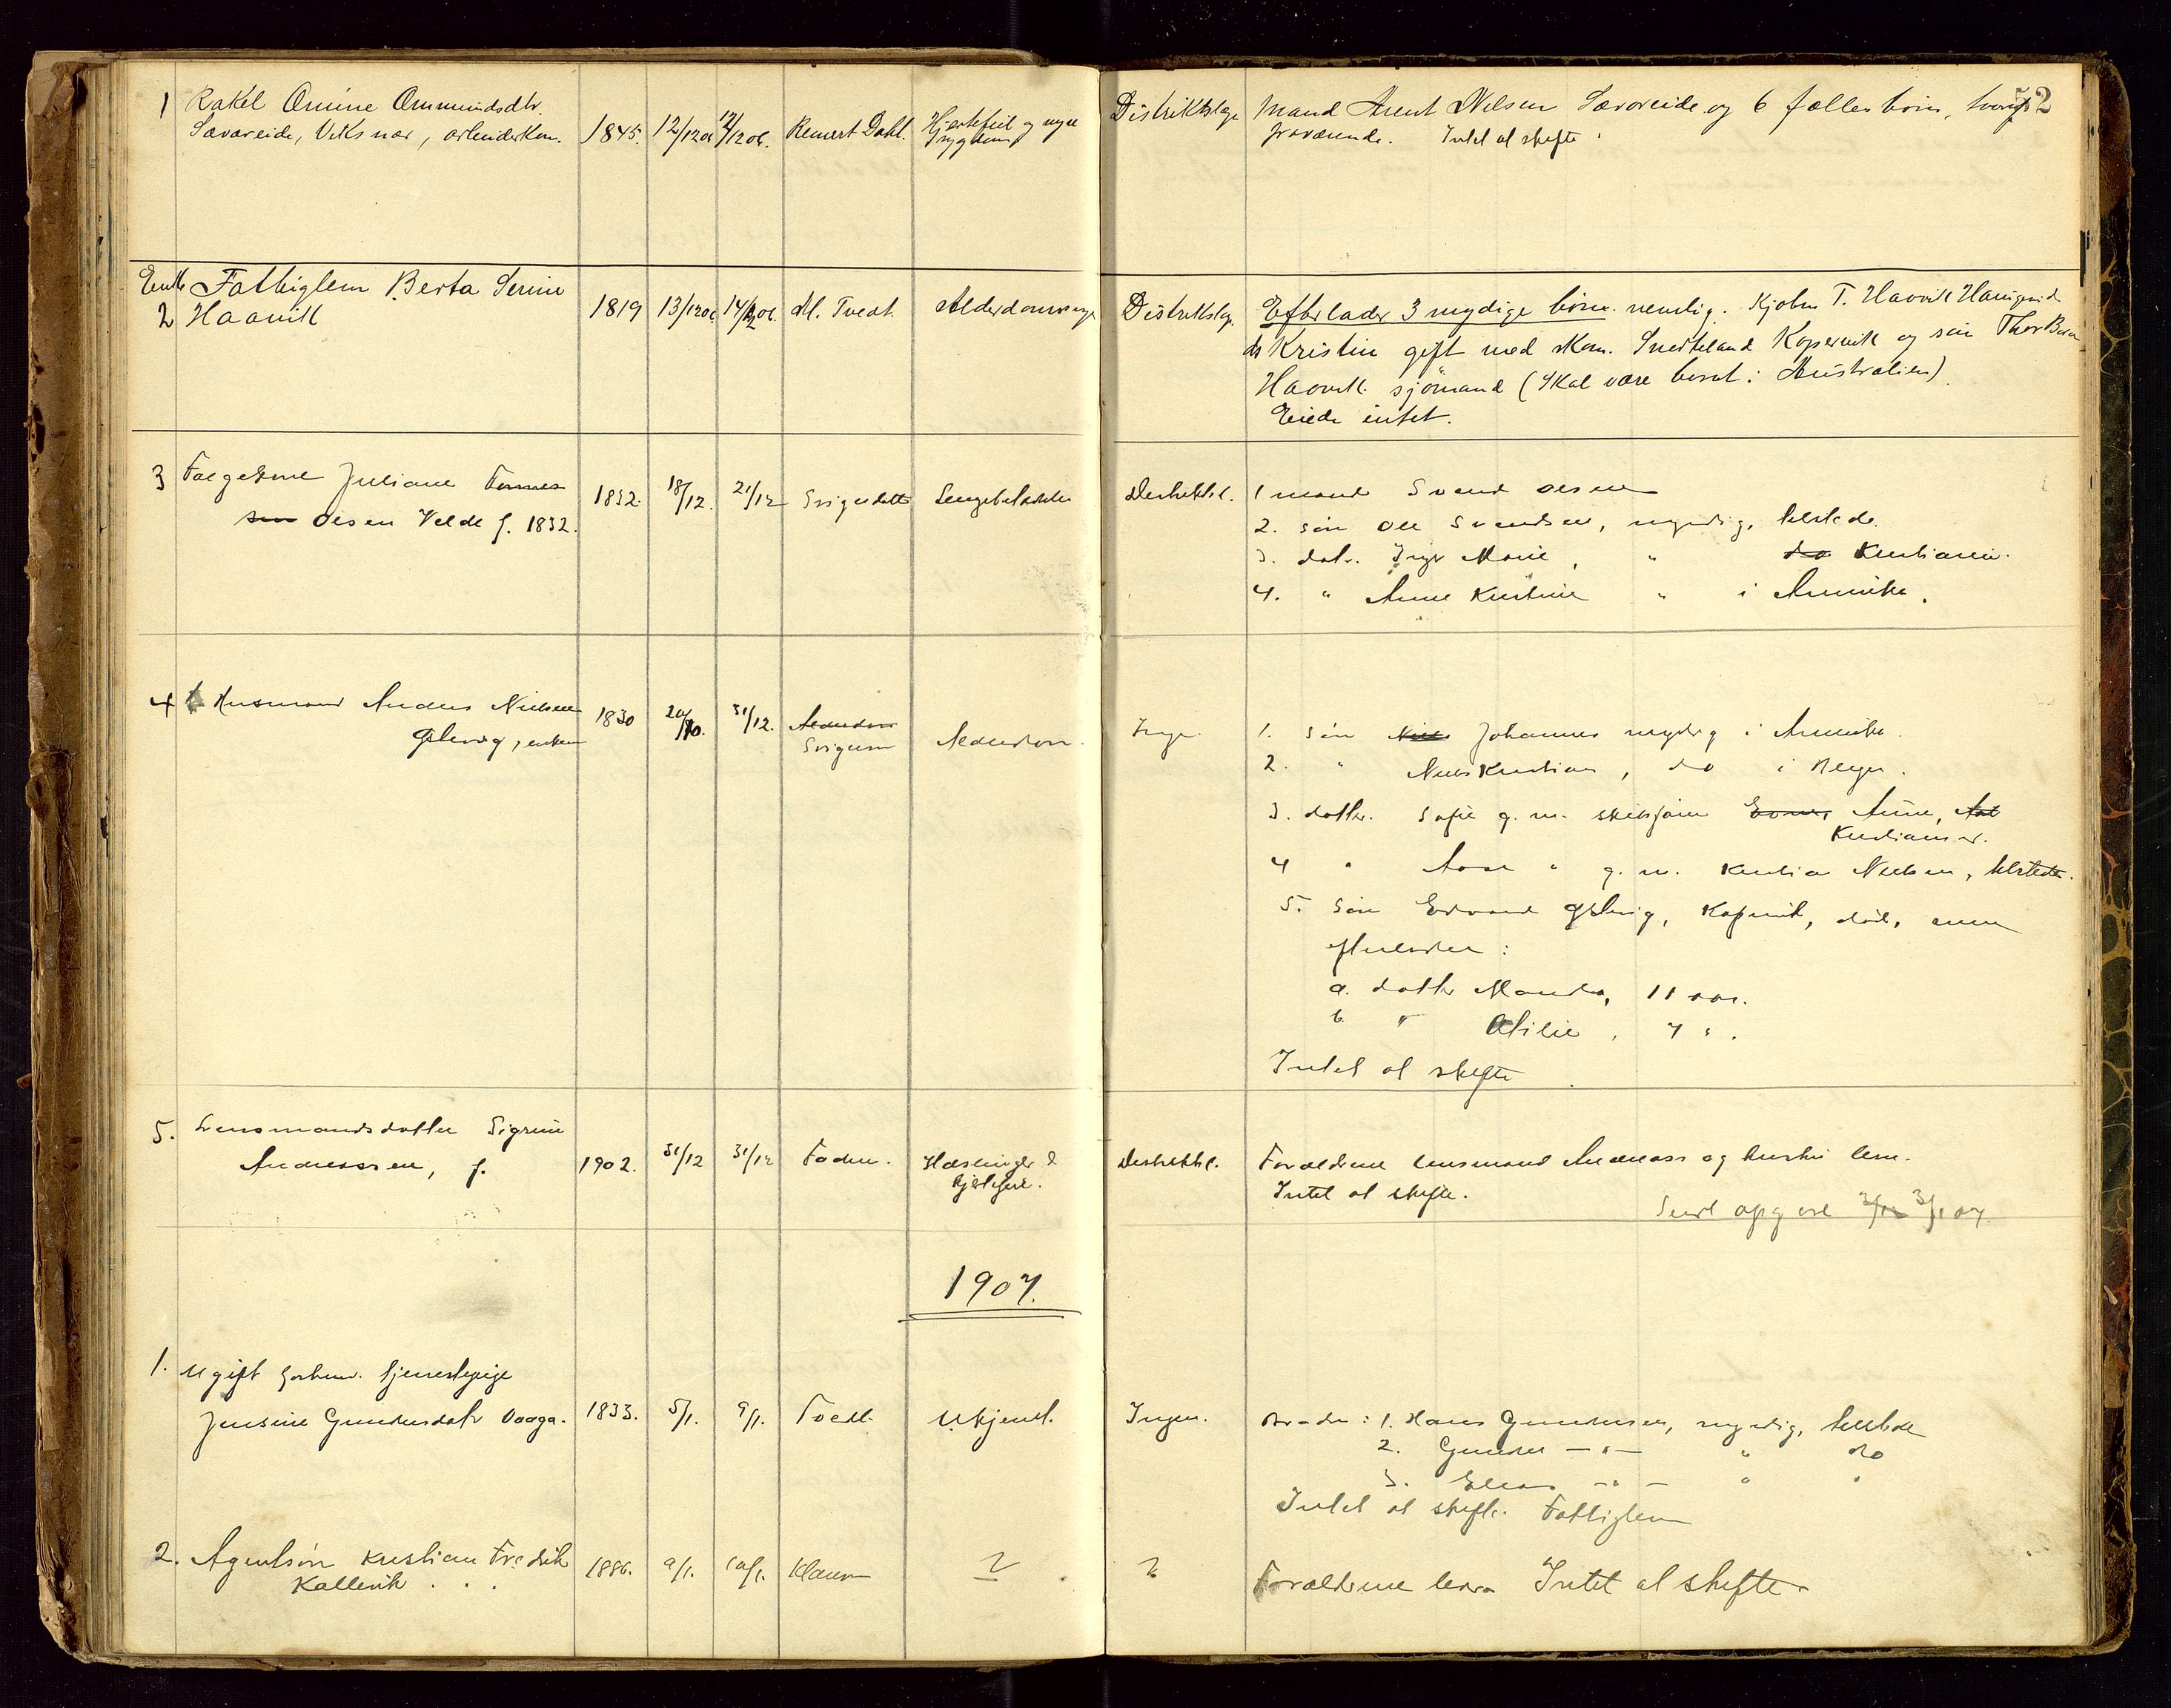 52
1 Rakel Omine Ommundsdtr.
Sævareide, Viksnæs, arbeiderkon. 1845. 12/12 06 12/12 06. Remert Dahl. Hjertefeil og nyre
sygdom Distriktslæge Mand Arent Nilsen Sævareide og 6 fælles børn, hvoraf
fraværende. Intet at skifte
Enke Fattiglem Berta Serine
2 Haavik 1819 13/12 06. 14/12 06. M. Tvedt. Alderdomssvag Distriktslæg. Efterlader 3 mydige børn. nemlig. Kjøbm T. Haavik Haugesund
dt Kristin gift med skom. Snerteland Kopervik og søn Thor Bern
Haavik. sjømand (skal være bosat i Australien)
Eiede intet.
3 Følgekone Juliane
Olsen Velde f. 1832. 1832. 18/12. 21/12 Svigerdatter Lungebetændelse Distriktsl. 1 mand Svend Olsen
2. søn Ole Svendsen, myndig, tilstede.
3. dat. Inger Marie, " do Kristiania.
4. " Anne Kristine " i Amerika.
4 Husmand Anders Nielsen
Østevig, enkem 1830 20/10. 31/12. Alderdom
Svigersøn Alderdom. Ingen. 1. Søn Niels Johannes myndig i Amerika.
2. " Niels Kristian, do i Bergen.
3. datter. Sofie g. m. skibstøm Arne,
Kristiansund.
4 " Aase " g. m. Kristian Nielsen, tilstede.
5. Søn Edvard Østevig, Kopervik, død, men
efterlader:
a. datter Manda, 11 aar.
b. " Otilie, 7 ".
Intet at skifte
5. Lensmandsdatter Sigrun
Andreassen, f. 1902. 31/12 31/12 Faderen. Meslinger &
hjertefeil. Distriktsl. Forældrene lensmand Andreass og hustru lever.
Intet at skifte.
Sendt opgave 3/1 07
1907.
1. Ugift forhenv. tjenestepige
Jensine Gundersdatr Vaaga. 1833. 5/1. 9/1. Tvedt. Ukjendt. Ingen. Brødre: 1. Hans Gundersen, myndig, tilstede
2. Gunder — " — " do
3. Elias — " — " "
Intet at skifte. Fattiglem
2. Agentsøn Kristian Fredrik
Kallevik 1886. 9/1. 10/1. Klaus ? ? Forældrene lever Intet at skifte.